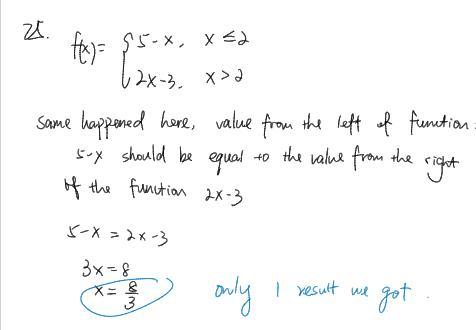 25.
f(x) = { 5-x, x ≤ 2
2x-3, x > 2
same happened here, value from the left of function
5-x should be equal to the value from the right
of the function 2x-3
5-x = 2x-3
3x = 8
x = 8/3 only 1 result we got.